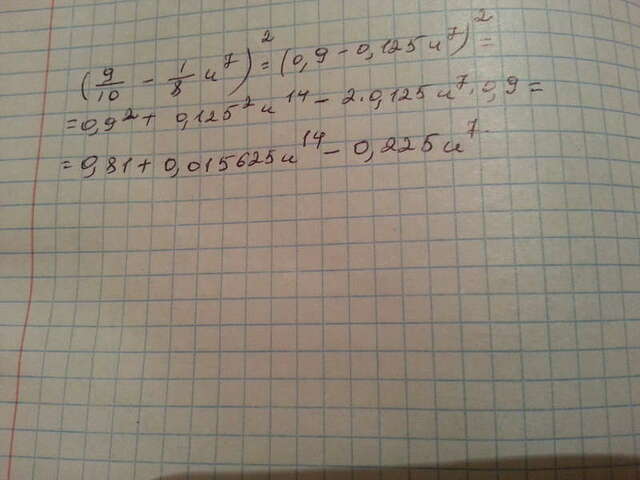 (9/10 - 1/8 u⁷)² = (0,9 - 0,125u⁷)² =
= 0,9² + 0,125² u¹⁴ - 2·0,125u⁷·0,9 =
= 0,81 + 0,015625u¹⁴ - 0,225u⁷.